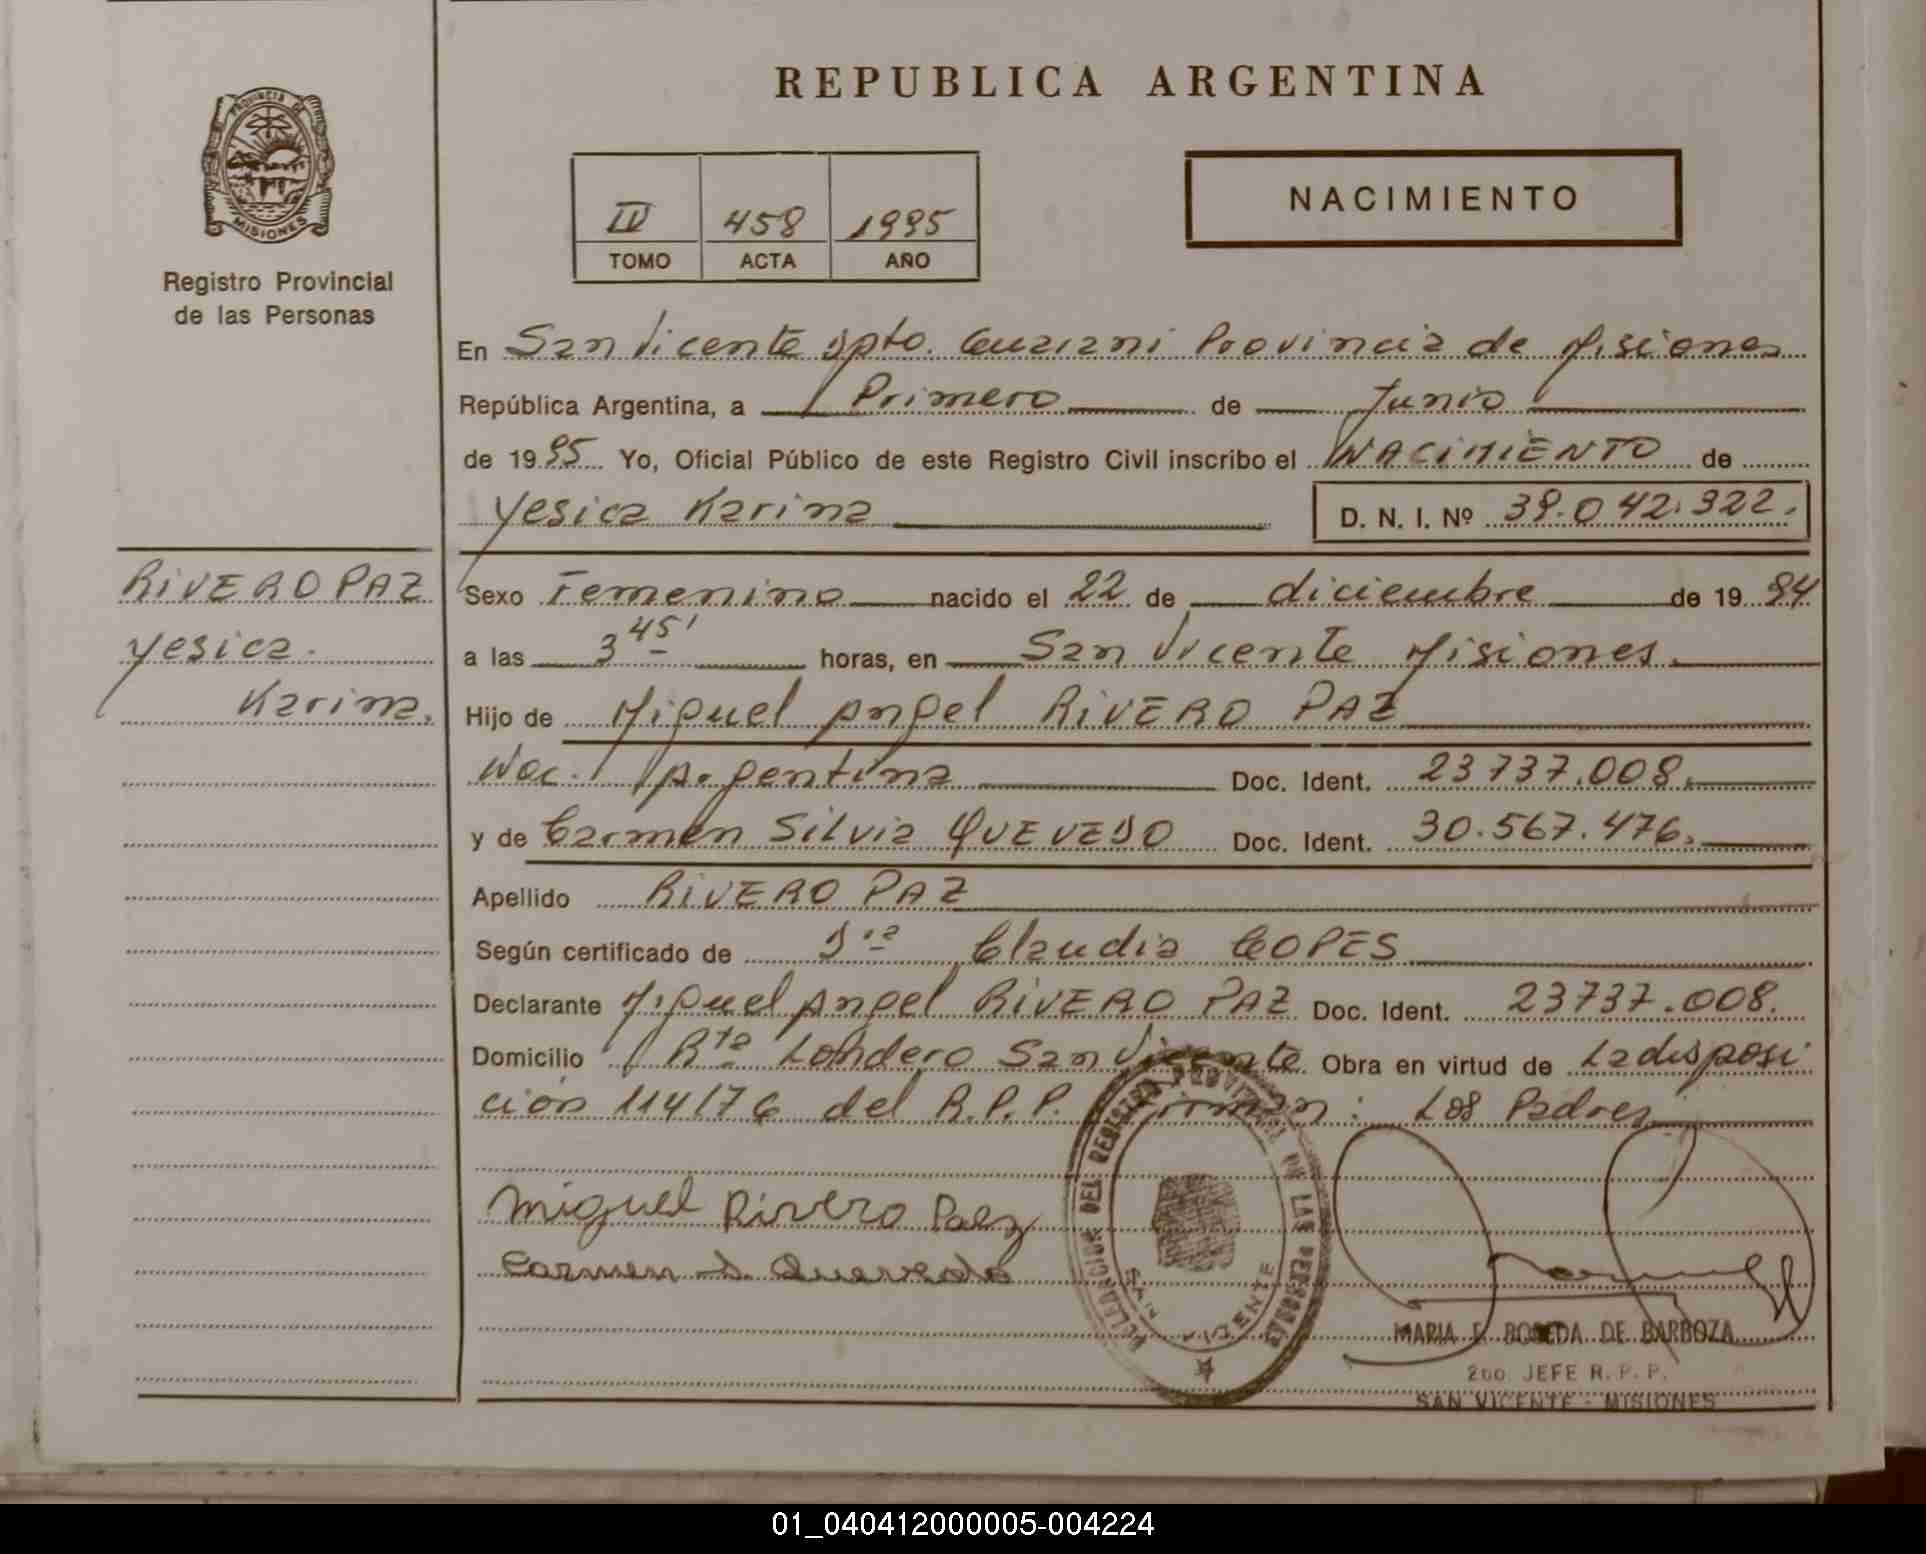 REPUBLICA ARGENTINA
PROVINCIA DE
MISIONES
Registro Provincial
de las Personas
IV 458 1995
TOMO ACTA AÑO
NACIMIENTO
En San Vicente Dpto. Guarani Provincia de Misiones
República Argentina, a Primero de Junio
de 1995 Yo, Oficial Público de este Registro Civil inscribo el NACIMIENTO de
Yesica Karina D. N. I. Nº 39.042.322.
RIVERO PAZ
Yesica
Karina.
Sexo Femenino nacido el 22 de diciembre de 1994
a las 3 45' horas, en San Vicente Misiones.
Hijo de Miguel Angel RIVERO PAZ
Nac. Argentina Doc. Ident. 23737.008.
y de Carmen Silvia QUEVEDO Doc. Ident. 30.567.476.
Apellido RIVERO PAZ
Según certificado de Dra Claudia COPES
Declarante Miguel Angel RIVERO PAZ Doc. Ident. 23737.008.
Domicilio Rta Londero San Vicente Obra en virtud de La disposi
ción 114/76 del R.P.P. Firman: Los Padres
Miguel Rivero Paez
Carmen S. Quevedo
DELEGACION DEL REGISTRO PROVINCIAL DE LAS PERSONAS
SAN VICENTE
MARIA E. BOVEDA DE BARBOZA
2do. JEFE R. P. P.
SAN VICENTE - MISIONES
01_040412000005-004224